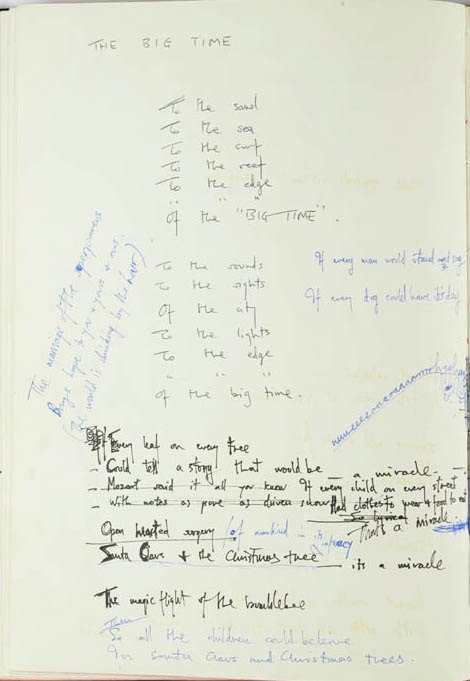 THE BIG TIME
To the sand
To the sea
To the surf
To the reef
To the edge
" " "
Of the "BIG TIME".
To the sounds
To the sights
Of the city
To the lights
To the edge
" " "
Of the big time.
The marriage of the
Brings hope to you + yours + ours.
(The world is shrinking by the hour)
If every man would stand
If every dog could have its day
If Every leaf on every tree
- Could tell a story that would be a miracle -
- Mozart said it all you know If every child on every street
- With notes as pure as driven snow Had clothes to wear & food to eat
That's a miracle
Open hearted surgery (of mankind in its infancy
Santa Claus & the Christmas tree its a miracle
The magic flight of the bumblebee
Then
So all the children could believe
In Santa Claus and Christmas trees.